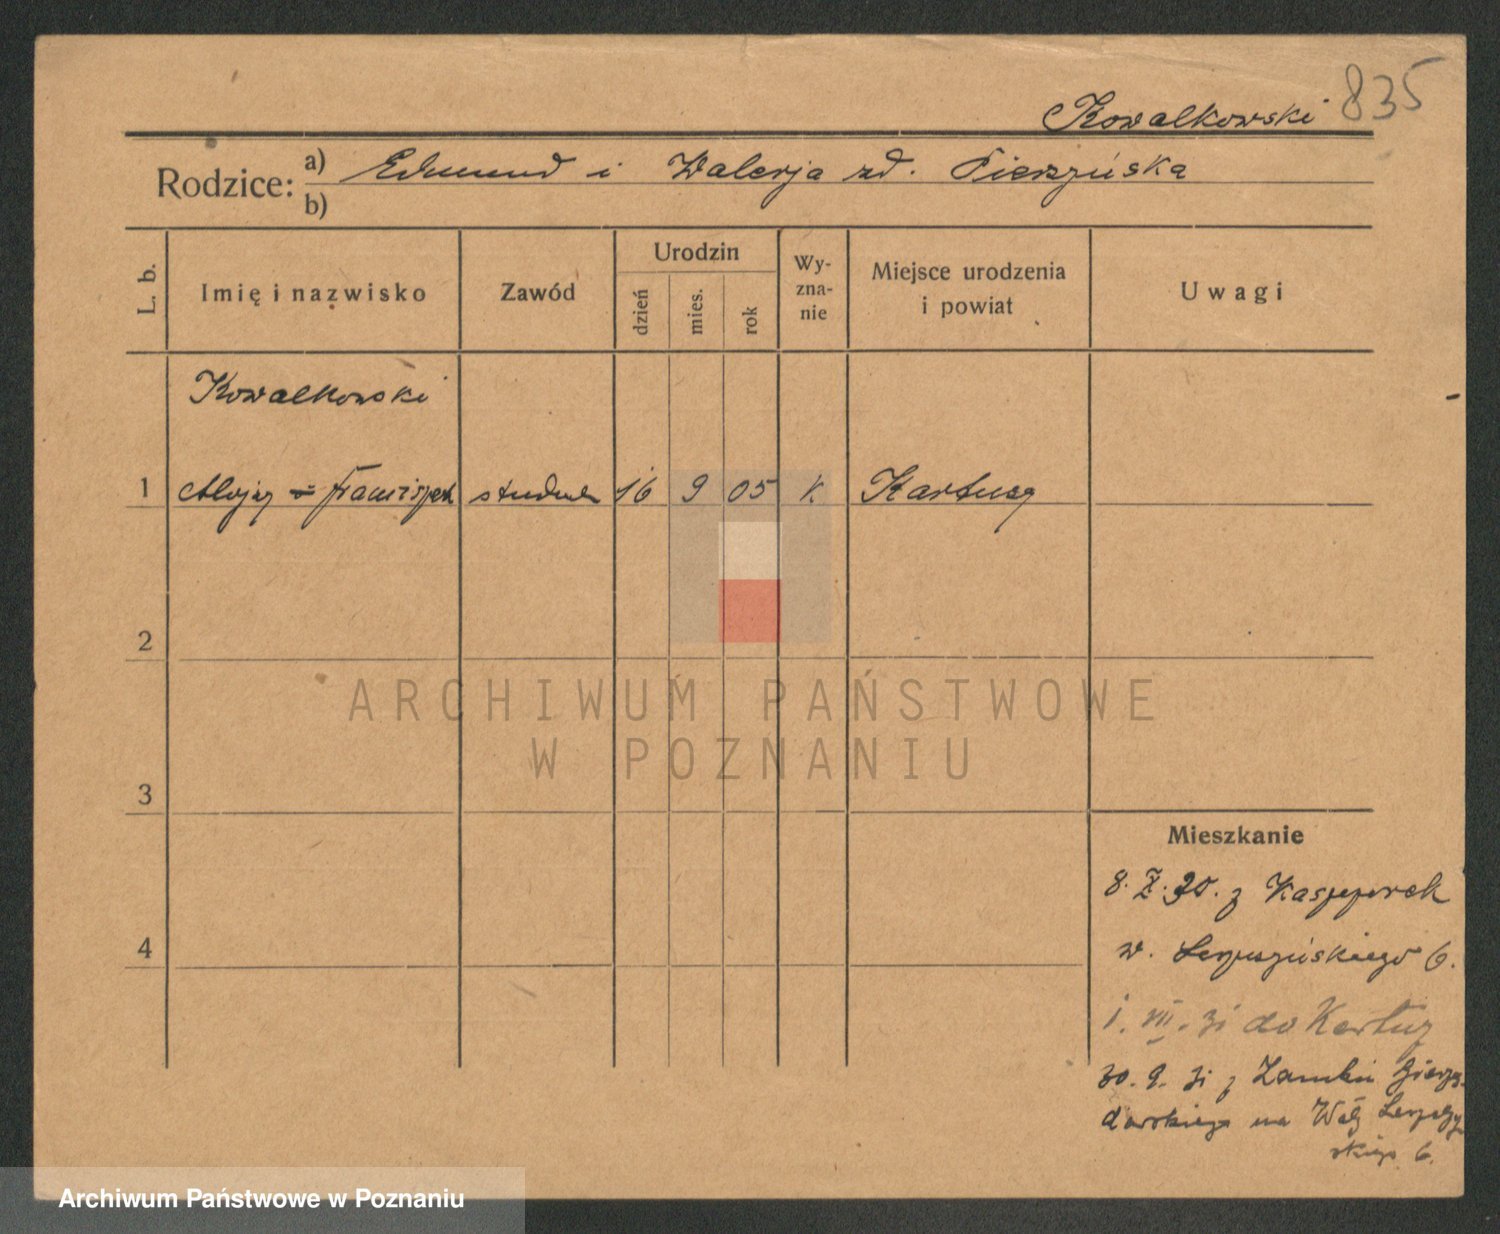 835
Kowalkowski
Rodzice: a) Edmund i Walerja zd. Pierzyńska
b)
L. b.
Imię i nazwisko
Zawód
Urodzin
dzień
mies.
rok
Wy-
zna-
nie
Miejsce urodzenia
i powiat
Uwagi
Kowalkowski
1 Alojzy = Franciszek student 16 9 05 k. Kartuzy
2
ARCHIWUM PAŃSTWOWE
W POZNANIU
3
Mieszkanie
8. X. 30. z
w. 6.
4
1. VII. 31 do Kartuz
30. 9. 31 z Zamku
na Wały
6.
Archiwum Państwowe w Poznaniu